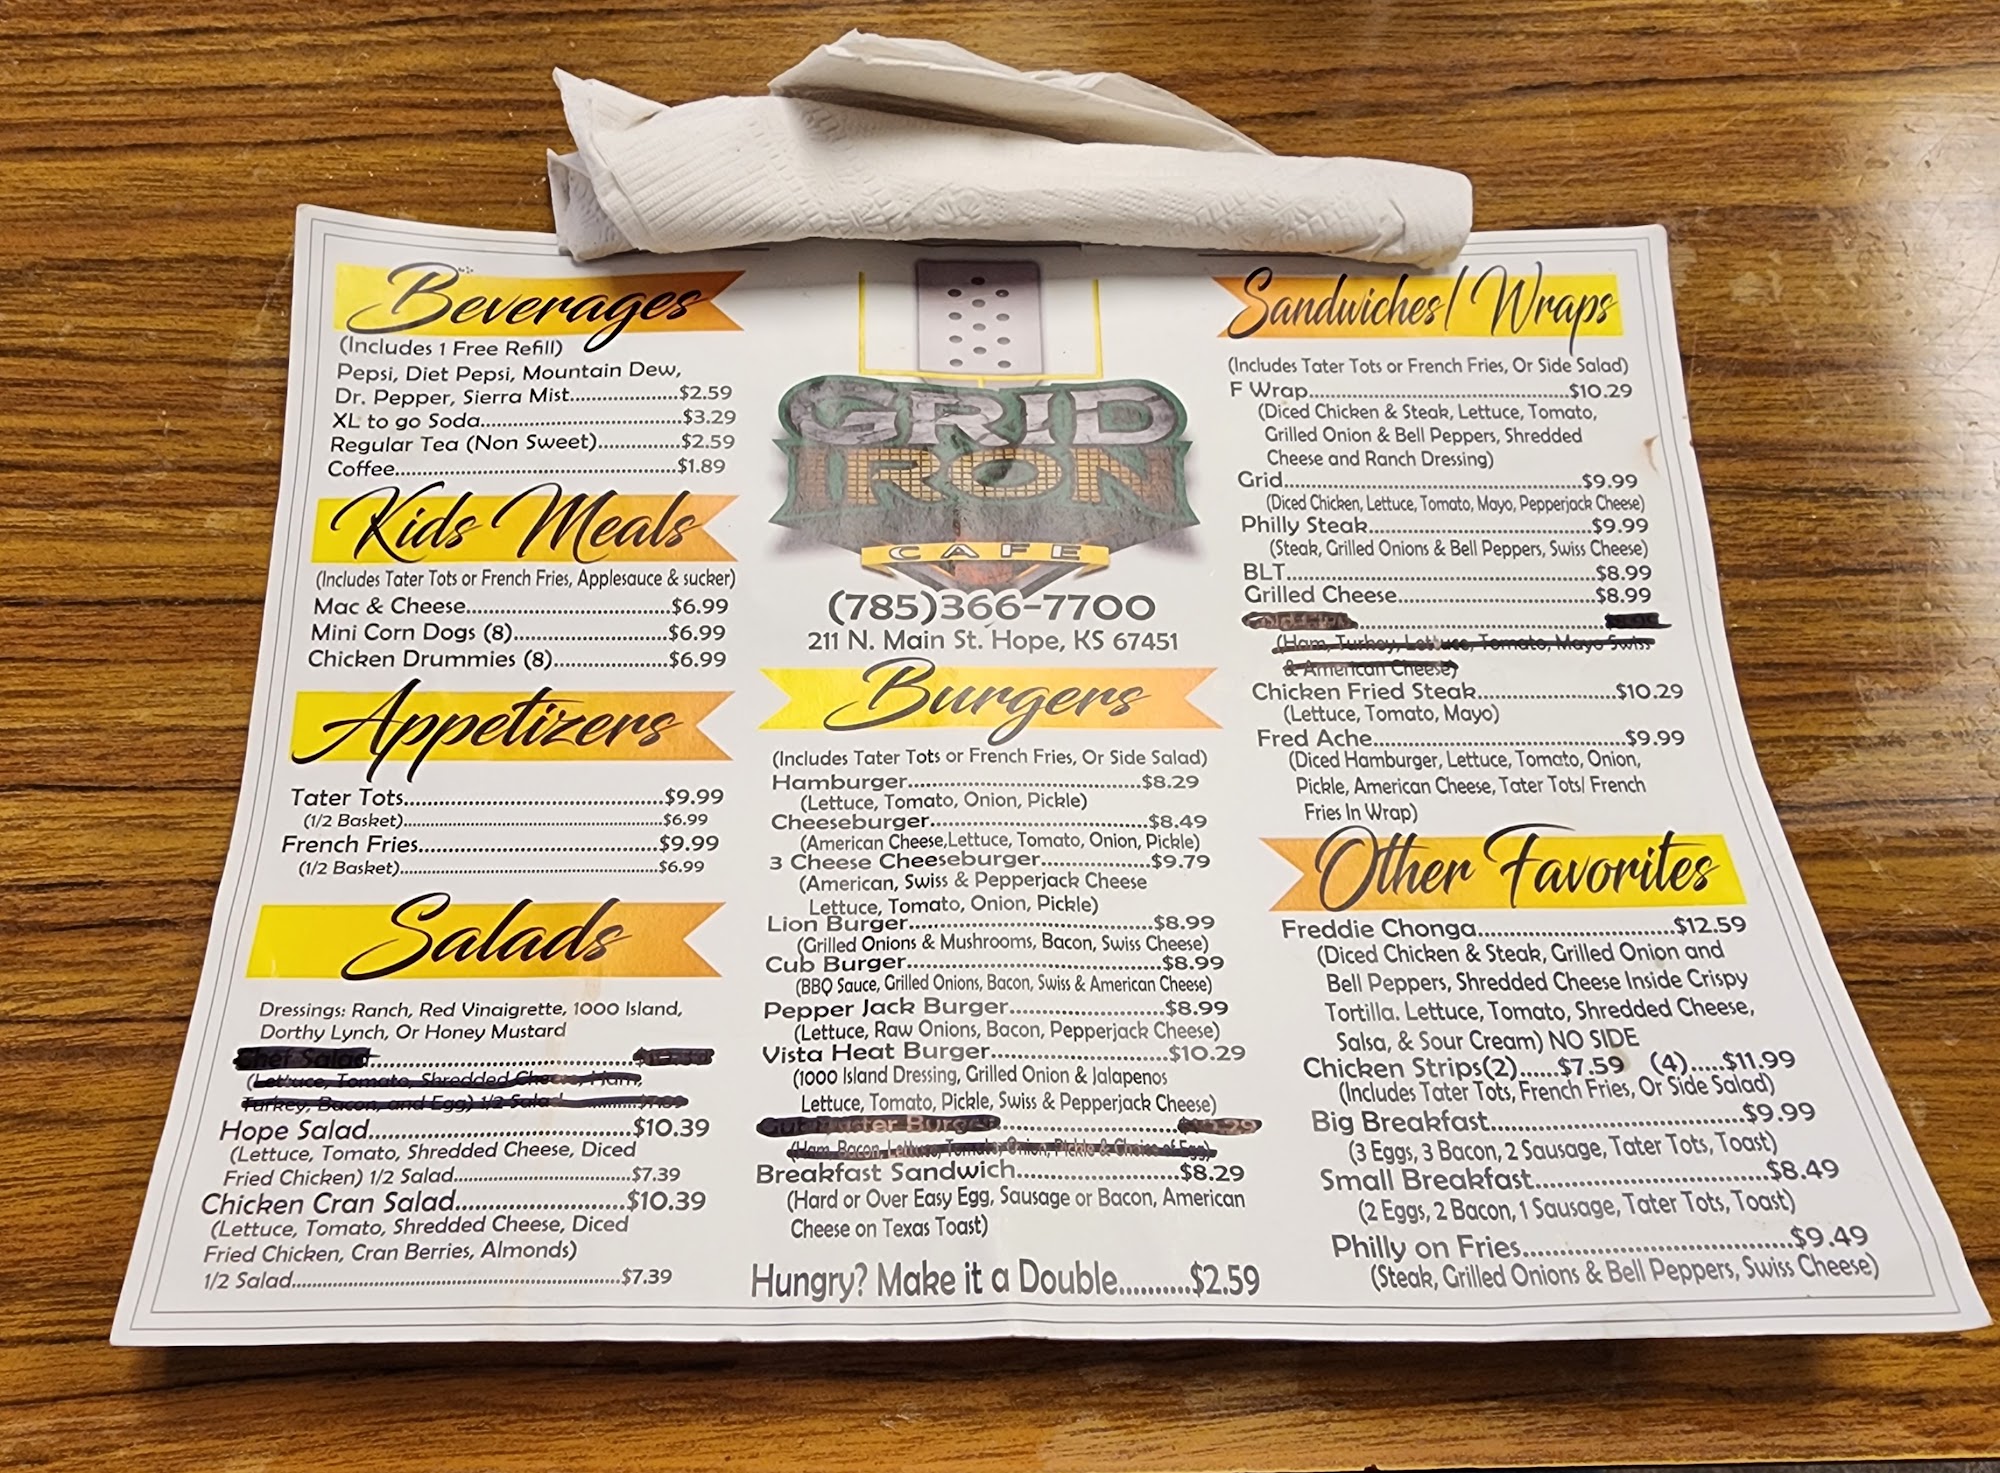 Beverages
(Includes 1 Free Refill)
Pepsi, Diet Pepsi, Mountain Dew,
Dr. Pepper, Sierra Mist....................$2.59
XL to go Soda....................$3.29
Regular Tea (Non Sweet)....................$2.59
Coffee....................$1.89
Kids Meals
(Includes Tater Tots or French Fries, Applesauce & sucker)
Mac & Cheese....................$6.99
Mini Corn Dogs (8)....................$6.99
Chicken Drummies (8)....................$6.99
Appetizers
Tater Tots....................$9.99
(1/2 Basket)....................$6.99
French Fries....................$9.99
(1/2 Basket)....................$6.99
Salads
Dressings: Ranch, Red Vinaigrette, 1000 Island,
Dorthy Lynch, Or Honey Mustard
Chef Salad....................
(Lettuce, Tomato, Shredded Cheese, Ham,
Turkey, Bacon, and Egg) 1/2 Salad....................$7.39
Hope Salad....................$10.39
(Lettuce, Tomato, Shredded Cheese, Diced
Fried Chicken) 1/2 Salad....................$7.39
Chicken Cran Salad....................$10.39
(Lettuce, Tomato, Shredded Cheese, Diced
Fried Chicken, Cran Berries, Almonds)
1/2 Salad....................$7.39
GRID
IRON
CAFE
(785)366-7700
211 N. Main St. Hope, KS 67451
Burgers
(Includes Tater Tots or French Fries, Or Side Salad)
Hamburger....................$8.29
(Lettuce, Tomato, Onion, Pickle)
Cheeseburger....................$8.49
(American Cheese,Lettuce, Tomato, Onion, Pickle)
3 Cheese Cheeseburger....................$9.79
(American, Swiss & Pepperjack Cheese
Lettuce, Tomato, Onion, Pickle)
Lion Burger....................$8.99
(Grilled Onions & Mushrooms, Bacon, Swiss Cheese)
Cub Burger....................$8.99
(BBQ Sauce, Grilled Onions, Bacon, Swiss & American Cheese)
Pepper Jack Burger....................$8.99
(Lettuce, Raw Onions, Bacon, Pepperjack Cheese)
Vista Heat Burger....................$10.29
(1000 Island Dressing, Grilled Onion & Jalapenos
Lettuce, Tomato, Pickle, Swiss & Pepperjack Cheese)
Burger....................
(Ham, Bacon, Lettuce, Tomato, Onion, Pickle & Choice of Egg)
Breakfast Sandwich....................$8.29
(Hard or Over Easy Egg, Sausage or Bacon, American
Cheese on Texas Toast)
Hungry? Make it a Double...........$2.59
Sandwiches/ Wraps
(Includes Tater Tots or French Fries, Or Side Salad)
F Wrap....................$10.29
(Diced Chicken & Steak, Lettuce, Tomato,
Grilled Onion & Bell Peppers, Shredded
Cheese and Ranch Dressing)
Grid....................$9.99
(Diced Chicken, Lettuce, Tomato, Mayo, Pepperjack Cheese)
Philly Steak....................$9.99
(Steak, Grilled Onions & Bell Peppers, Swiss Cheese)
BLT....................$8.99
Grilled Cheese....................$8.99
(Ham, Turkey, Lettuce, Tomato, Mayo Swiss
& American Cheese)
Chicken Fried Steak....................$10.29
(Lettuce, Tomato, Mayo)
Fred Ache....................$9.99
(Diced Hamburger, Lettuce, Tomato, Onion,
Pickle, American Cheese, Tater Tots/ French
Fries In Wrap)
Other Favorites
Freddie Chonga....................$12.59
(Diced Chicken & Steak, Grilled Onion and
Bell Peppers, Shredded Cheese Inside Crispy
Tortilla. Lettuce, Tomato, Shredded Cheese,
Salsa, & Sour Cream) NO SIDE
Chicken Strips(2)......$7.59 (4).....$11.99
(Includes Tater Tots, French Fries, Or Side Salad)
Big Breakfast....................$9.99
(3 Eggs, 3 Bacon, 2 Sausage, Tater Tots, Toast)
Small Breakfast....................$8.49
(2 Eggs, 2 Bacon, 1 Sausage, Tater Tots, Toast)
Philly on Fries....................$9.49
(Steak, Grilled Onions & Bell Peppers, Swiss Cheese)